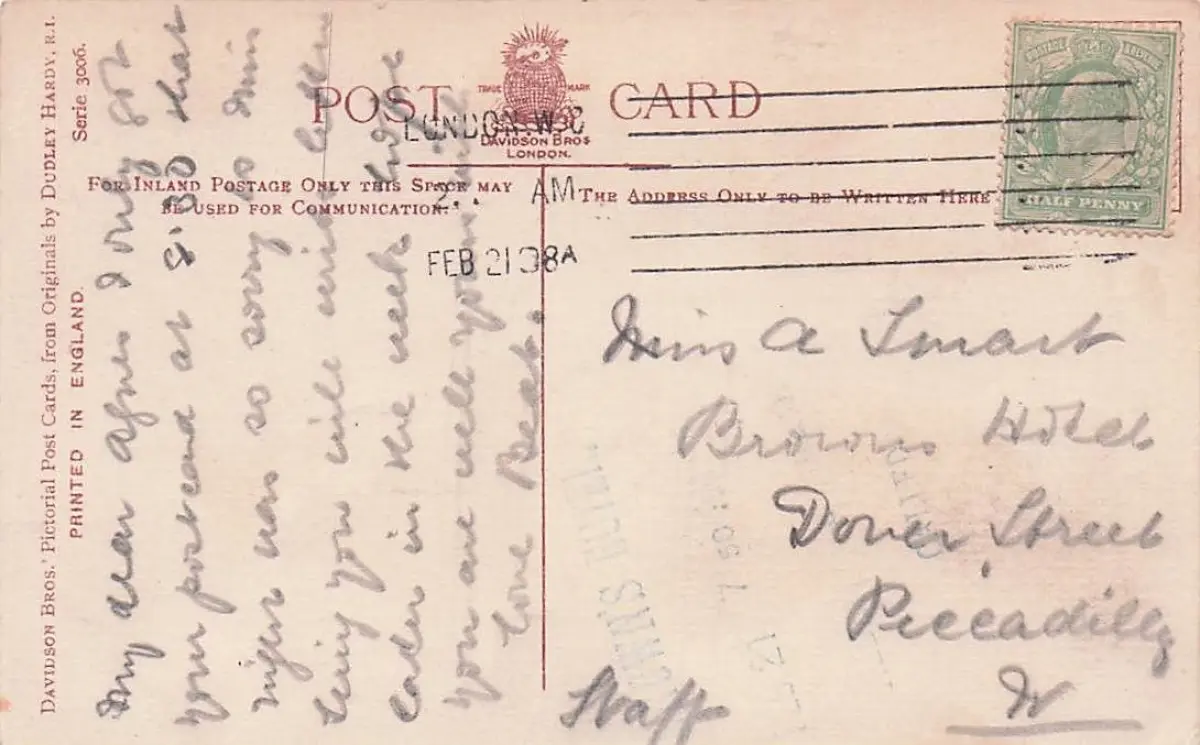 DAVIDSON BROS.' PICTORIAL POST CARDS, from ORIGINALS by DUDLEY HARDY, R.I.
PRINTED IN ENGLAND.
Serie 3006.
POST CARD
TRADE MARK
DAVIDSON BROS
LONDON.
FOR INLAND POSTAGE ONLY THIS SPACE MAY
BE USED FOR COMMUNICATION.
THE ADDRESS ONLY TO BE WRITTEN HERE
LONDON. W.C
AM
FEB 21 08A
POSTAGE REVENUE
HALF PENNY
My dear Agnes I only got
your postcard at 8.30 that
night was so sorry to miss
seeing you will write letter
later in the week hope
you are well yourself
love Beat.
Miss A Smart
Browns Hotel
Dover Street
Piccadilly
W
Staff
BROWNS HOTEL
21